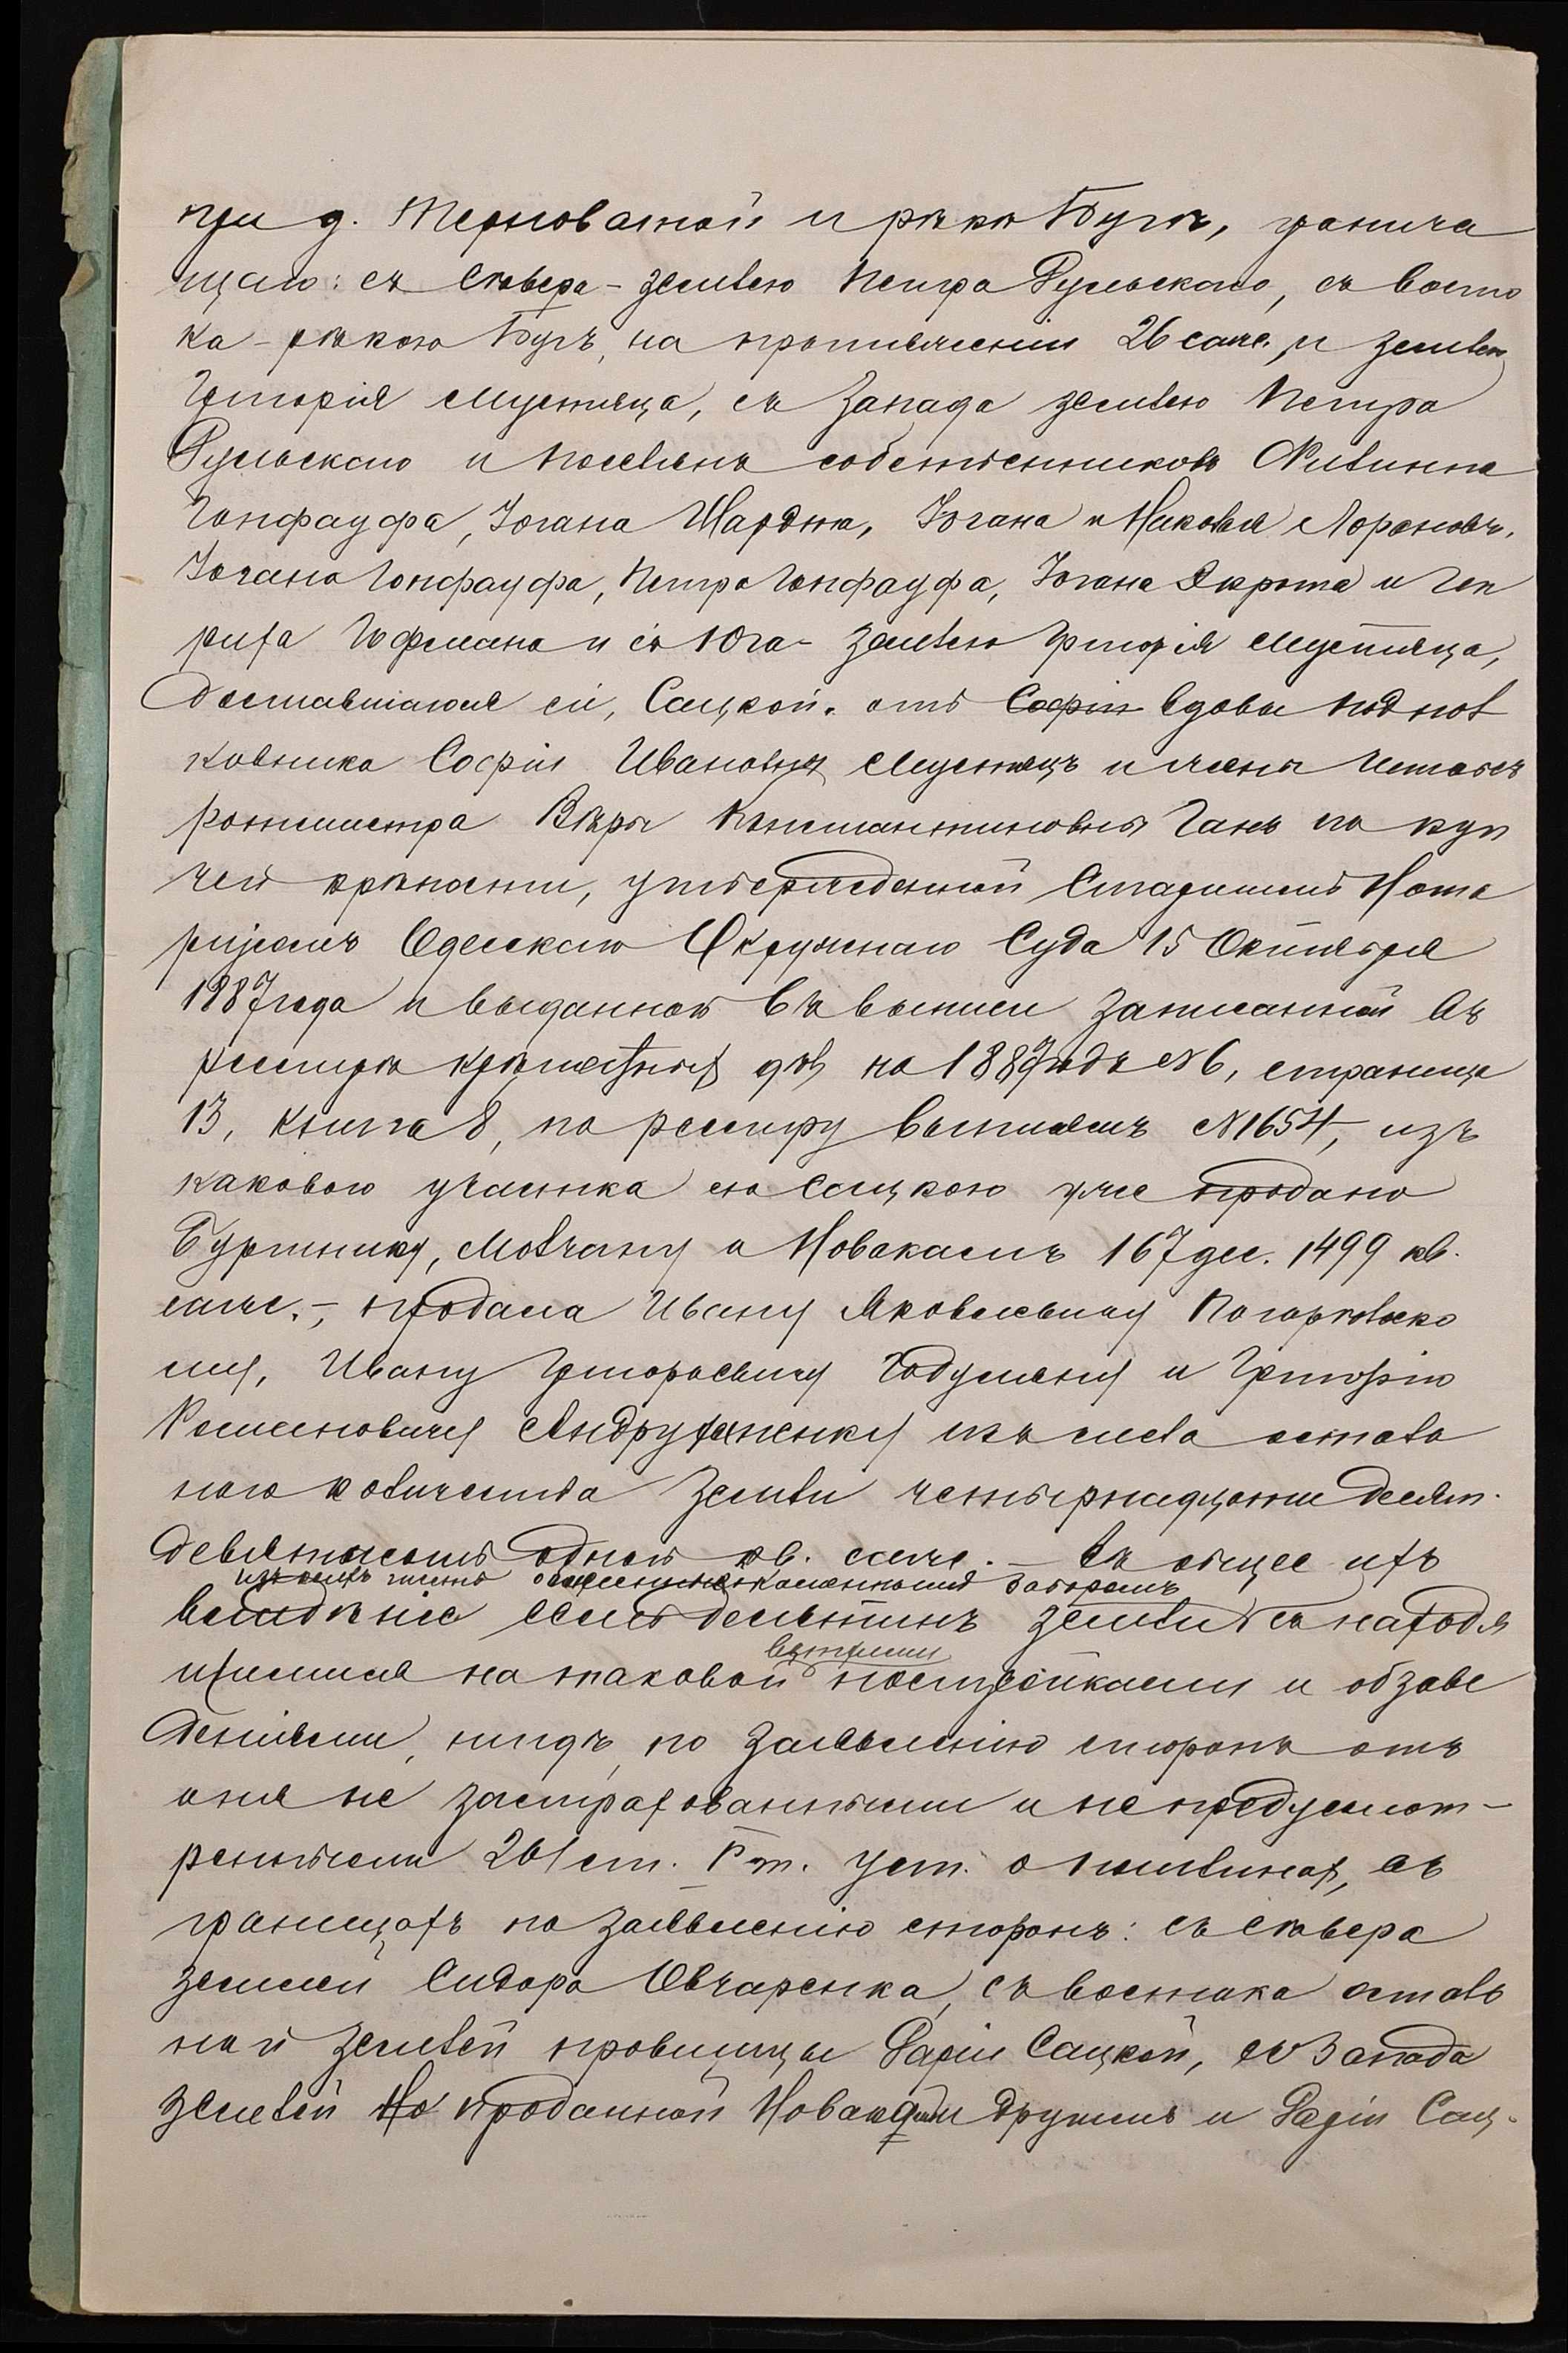 при д. Терноватой и рѣкѣ Бугѣ, гранича
щаго: съ Сѣвера - землею Петра Рульскаго, съ восто
ка - рѣкою Бугъ, на протяженіи 26 саж. и землею
Григорія Мустяца, съ Запада землею Петра
Рульскаго и поселянъ собственниковъ Филиппа
Гонфауфа, Іогана Шардта, Іогана и Якова Лореновъ,
Іогана Гонфауфа, Петра Гонфауфа, Іогана Экрота и Ген
риха Гофмана и съ Юга - землею Григорія Мустяца,
доставшагося ей, Сацкой, отъ Софіи вдовы подпол
ковника Софіи Ивановны Мустяцъ и жены Штабсъ
ротмистра Вѣры Константиновны Ганъ по куп
чей крѣпости, утвержденной Старшимъ Нота
ріусомъ Одесскаго Окружнаго Суда 15 Октября
1887 года и выданной въ выписи записанной въ
реестрѣ крѣпостныхъ дѣлъ на 1887 годъ № 6, страница
13, книга 8, по реестру выписямъ № 1654, изъ
каковаго участка ею Сацкою уже продано
Буртнику, Молчану и Новакамъ 167 дес. 1499 кв.
саж., - продала Ивану Яковлевичу Погорѣльско
му, Ивану Григорьевичу Годуляну и Григорію
Романовичу Андрущенку изъ числа осталь
ного количества земли четырнадцать десят.
девятьсотъ одной кв. саж. - въ общее ихъ
каменнымъ заборомъ
владѣніе семь десятинъ земли съ находя
ветхими
щимися на таковой постройками и обзаве
деніями, нигдѣ, по заявленію сторонъ отъ
огня не застрахованными и не предусмот-
рѣнными 261 ст. V т. Уст. о пошлинах, въ
границахъ по заявленію сторонъ: съ сѣвера
землей Сидора Овчаренка, съ востока осталь
ной землей продавщицы Софіи Сацкой, съ Запада
землей проданной Новакамъ другимъ и Софіи Сац-